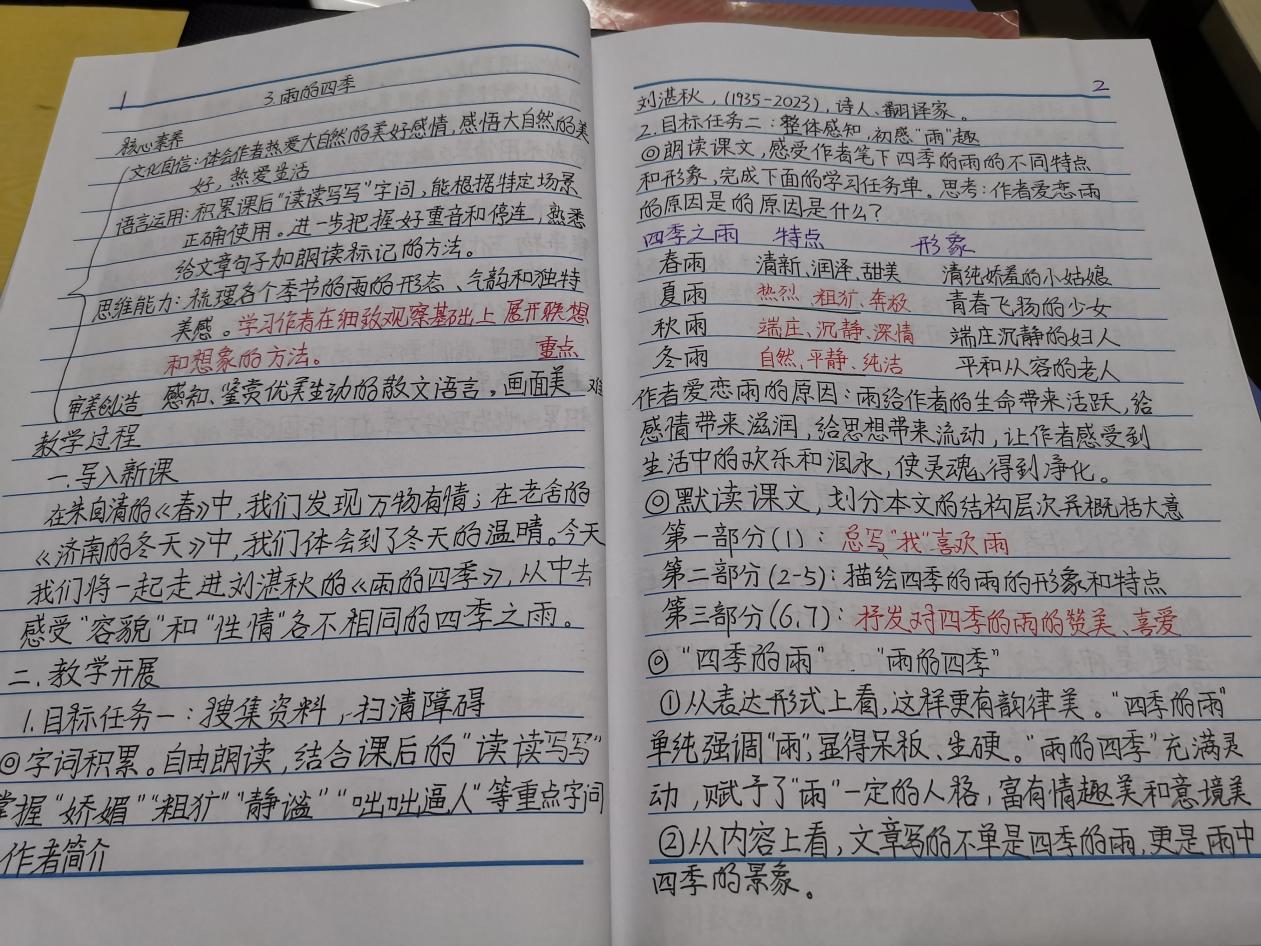 1
3.雨的四季
核心素养
文化自信：体会作者热爱大自然的美好感情，感悟大自然的美
好，热爱生活
语言运用：积累课后“读读写写”字词，能根据特定场景
正确使用。进一步把握好重音和停连，熟悉
给文章句子加朗读标记的方法。
思维能力：梳理各个季节的雨的形态、气韵和独特
美感。学习作者在细致观察基础上展开联想
和想象的方法。 重点
审美创造 感知、鉴赏优美生动的散文语言，画面美 难
教学过程
一.导入新课
在朱自清的《春》中，我们发现万物有情；在老舍的
《济南的冬天》中，我们体会到了冬天的温晴。今天
我们将一起走进刘湛秋的《雨的四季》，从中去
感受“容貌”和“性情”各不相同的四季之雨。
二.教学开展
1.目标任务一：搜集资料，扫清障碍
◎字词积累。自由朗读，结合课后的“读读写写”
掌握“娇媚”“粗犷”“静谧”“咄咄逼人”等重点字词
作者简介
2
刘湛秋，(1935-2023)，诗人、翻译家。
2.目标任务二：整体感知，初感“雨”趣
◎朗读课文，感受作者笔下四季的雨的不同特点
和形象，完成下面的学习任务单。思考：作者爱恋雨
的原因是的原因是什么？
四季之雨 特点 形象
春雨 清新、润泽、甜美 清纯娇羞的小姑娘
夏雨 热烈、粗犷、奔极 青春飞扬的少女
秋雨 端庄、沉静、深情 端庄沉静的妇人
冬雨 自然、平静、纯洁 平和从容的老人
作者爱恋雨的原因：雨给作者的生命带来活跃，给
感情带来滋润，给思想带来流动，让作者感受到
生活中的欢乐和泪水，使灵魂得到净化。
◎默读课文，划分本文的结构层次并概括大意
第一部分(1)：总写“我”喜欢雨
第二部分(2-5)：描绘四季的雨的形象和特点
第三部分(6.7)：抒发对四季的雨的赞美、喜爱
◎“四季的雨”.“雨的四季”
①从表达形式上看，这样更有韵律美。“四季的雨”
单纯强调“雨”，显得呆板、生硬。“雨的四季”充满灵
动，赋予了“雨”一定的人格，富有情趣美和意境美
②从内容上看，文章写的不单是四季的雨，更是雨中
四季的景象。